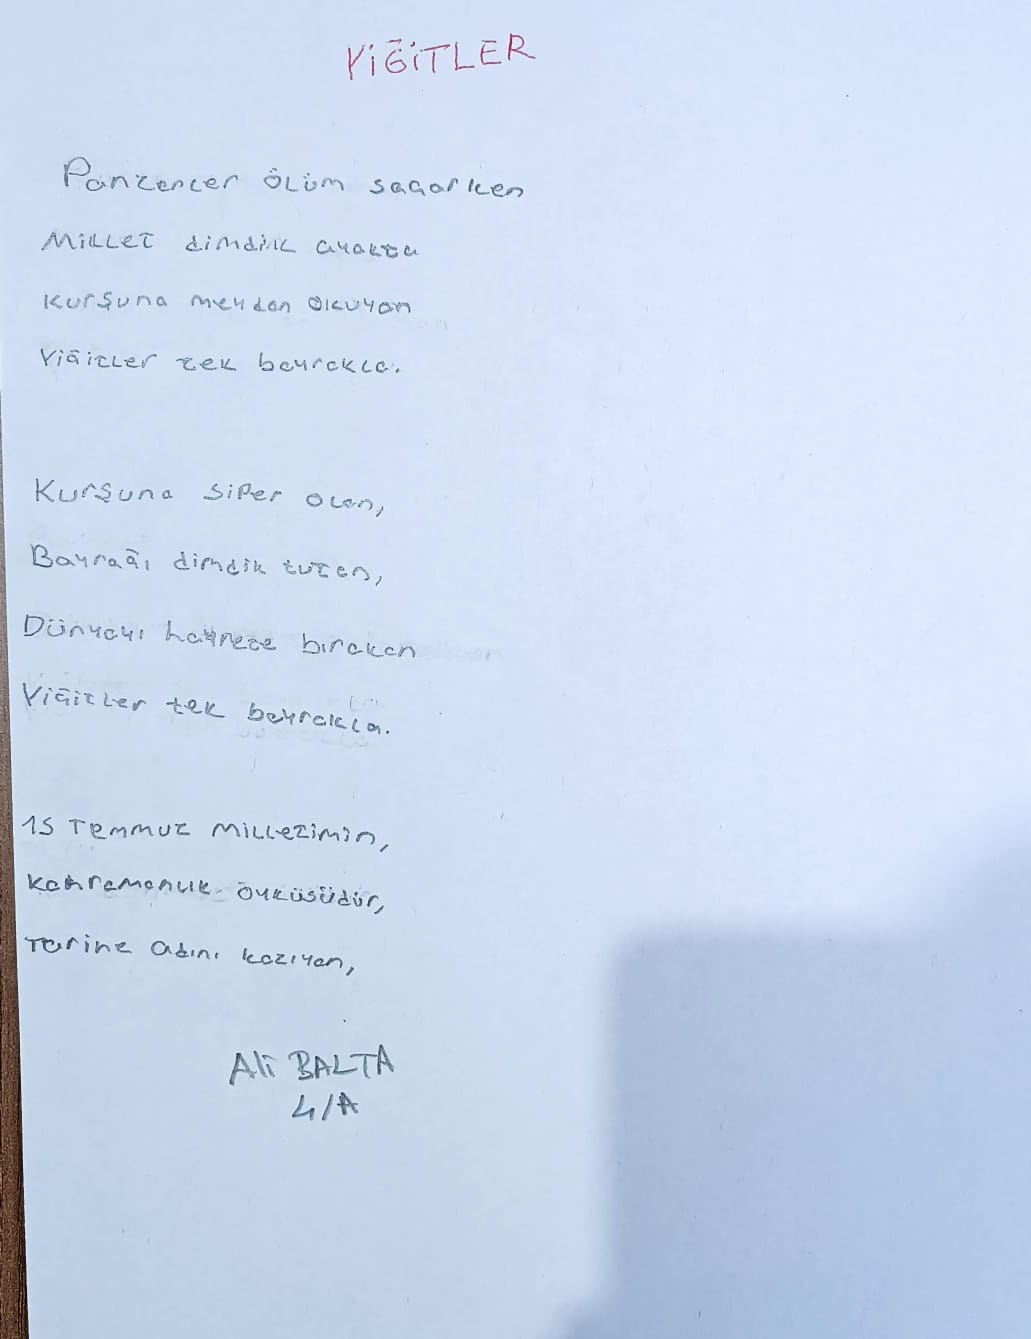 YİĞİTLER
Panzerler ölüm saçarken
Millet dimdik ayakta
Kurşuna meydan okuyan
Yiğitler tek bayrakla.
Kurşuna siper olan,
Bayrağı dimdik tutan,
Dünyayı hayrete bırakan
Yiğitler tek bayrakla.
15 Temmuz milletimin,
kahramanlık öyküsüdür,
Tarihe adını kazıyan,
Ali BALTA
4/A